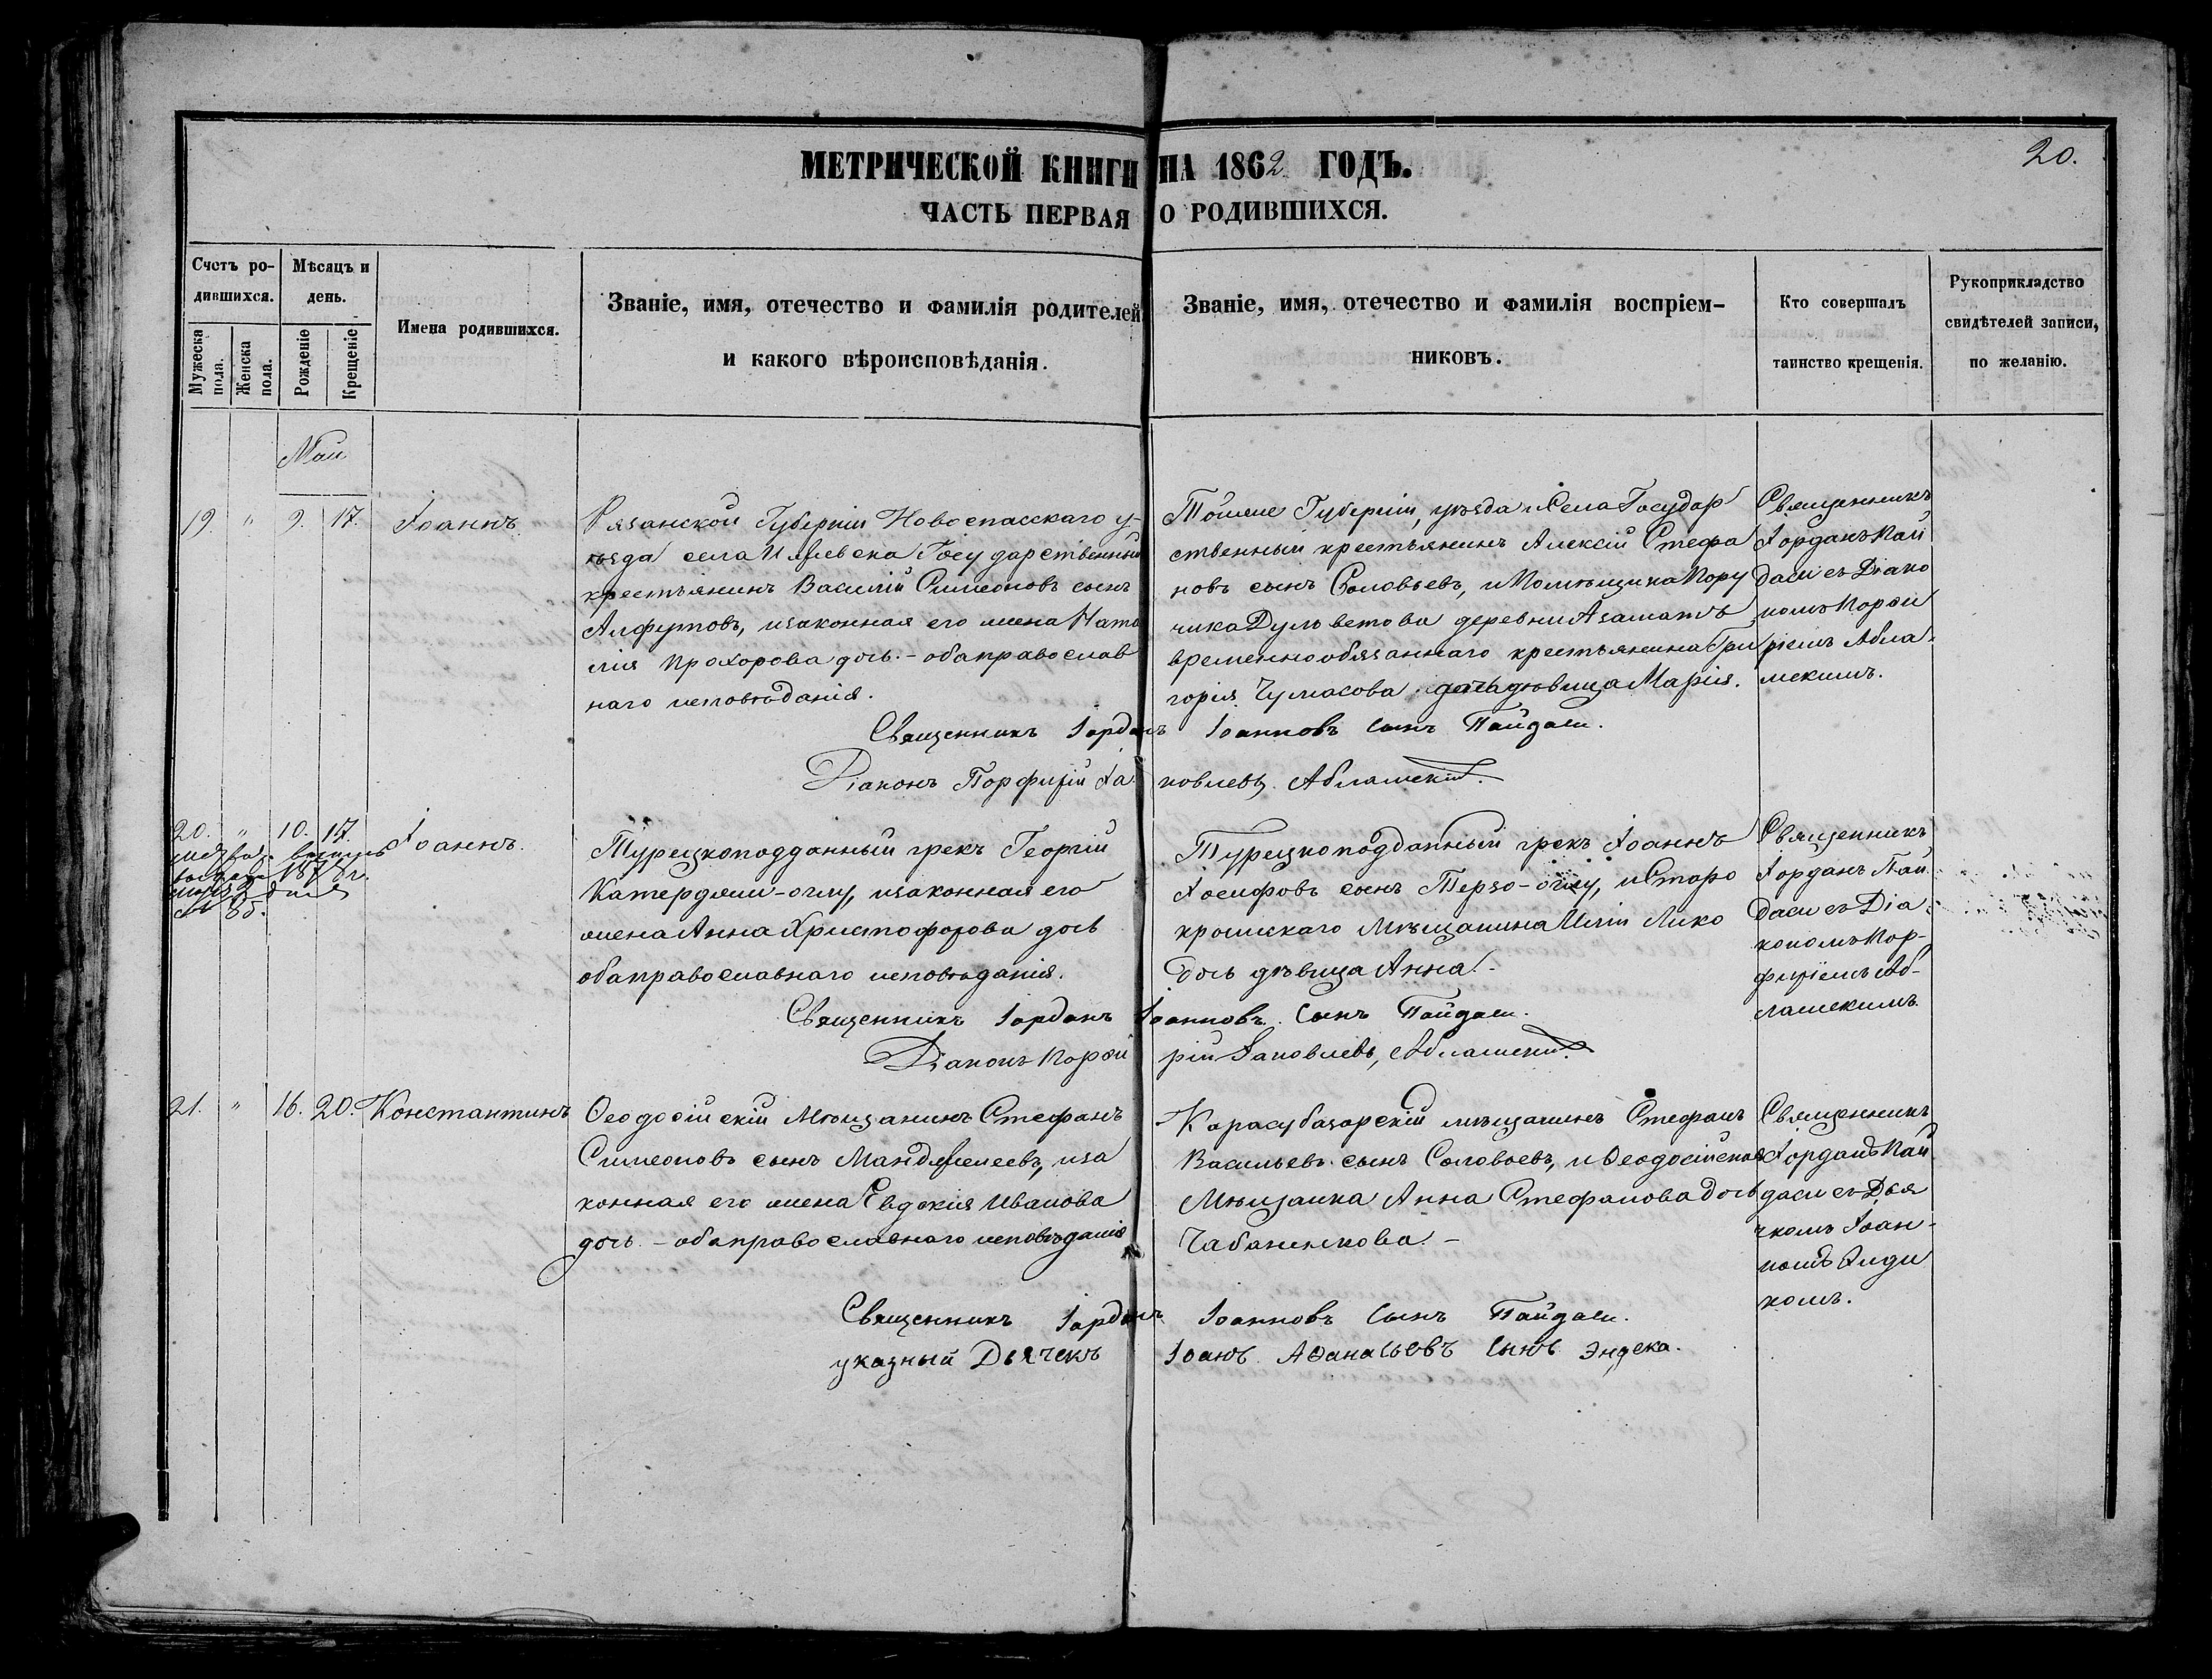 МЕТРИЧЕСКОЙ КНИГИ НА 1862 ГОДЪ.
20.
ЧАСТЬ ПЕРВАЯ О РОДИВШИХСЯ.
Счетъ родившихся.
Мужеска пола.
Женска пола.
Мѣсяцъ и день.
Рожденіе
Крещеніе
Имена родившихся.
Званіе, имя, отечество и фамилія родителей
и какого вѣроисповѣданія.
Званіе, имя, отечество и фамилія воспріем-
никовъ.
Кто совершалъ
таинство крещенія.
Рукоприкладство
свидѣтелей записи,
по желанію.
Май
19. " 9. 17. Іоаннъ.
Рязанской Губерніи Новоспасскаго у-
ѣзда села Государственный
крестьянинъ Василій Симеоновъ сынъ
Алфутовъ, изаконная его жена Ната
лія Прохорова дочь. - оба православ
наго исповѣданія.
Тойже Губерніи, уѣзда и Села Государ
ственный крестьянинъ Алексій Стефа
новъ сынъ Соловьевъ, и Помѣщика Пору
чика Дульветова деревни Азаматъ
временнообязаннаго крестьянина Гри
горія Чумасова дочь дѣвица Марія.
Священникъ
Іорданъ Пай
даси съ Діако
номъ Порфи
ріемъ Абла
мскимъ.
Священникъ Іорданъ Іоанновъ сынъ Пайдаси.
Діаконъ Порфирій Іаковлевъ Абламскій.
20. " 10. 17. Іоаннъ.
1878 г.
№ 85.
Турецкоподданный грекъ Георгій
Катерджи-оглу, изаконная его
жена Анна Христофорова дочь
оба православнаго исповѣданія.
Турецкоподданный грекъ Іоаннъ
Іосифовъ сынъ Терзо-оглу, и Старо
крымскаго Мѣщанина Иліи Лико
дочь дѣвица Анна. -
Священникъ
Іорданъ Пай
даси съ Діа
кономъ Пор-
фиріемъ Аб-
ламскимъ
Священникъ Іорданъ Іоанновъ сынъ Пайдаси.
Діаконъ Порфирій Іаковлевъ, Абламскій.
21. " 16. 20. Константинъ
Ѳеодосійскій Мѣщанинъ Стефанъ
Симеоновъ сынъ иза
конная его жена Евдокія Иванова
дочь. - оба православнаго исповѣданія
Карасубазарскій мѣщанинъ Стефанъ
Васильевъ сынъ Соловьевъ, и Ѳеодосійская
Мѣщанка Анна Стефанова дочь
Чабаненкова. -
Священникъ
Іорданъ Пай
даси съ Дья
чкомъ Іоан-
номъ Энде
комъ.
Священникъ Іорданъ Іоанновъ сынъ Пайдаси.
указный Дьячекъ Іоанъ Аѳанасьевъ сынъ Эндека.